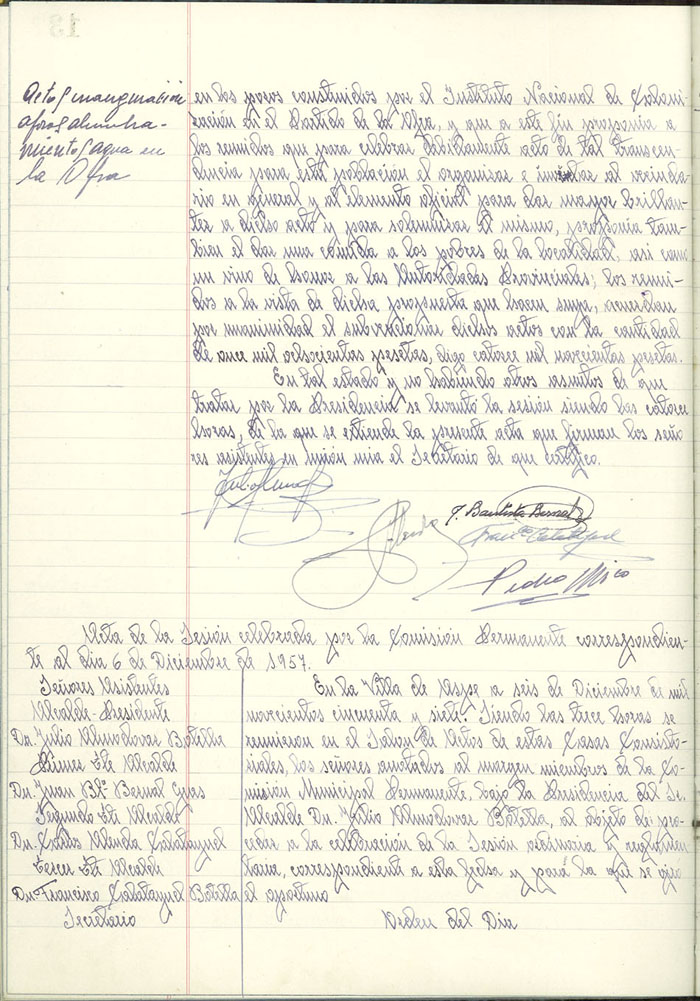 Acto inauguración
aforo alumbra-
miento agua en
la Ofra
en los pozos construidos por el Instituto Nacional de Coloni-
zación en el Partido de la Ofra, y que a este fin proponía a
los reunidos que para celebrar debidamente acto de tal transcen-
dencia para esta población el organizar e invitar al vecinda-
rio en general y al elemento oficial para dar mayor brillan-
tez a dicho acto y para solemnizar el mismo, proponía tam-
bien el dar una comida a los pobres de la localidad, asi como
un vino de honor a las Autoridades Provinciales; los reuni-
dos a la vista de dicha propuesta que hacen suya, acuerdan
por unanimidad el subvencionar dichos actos con la cantidad
de once mil ochocientas pesetas, digo catorce mil novecientas pesetas.
En tal estado y no habiendo otros asuntos de que
tratar por la Presidencia se levanto la sesión siendo las catorce
horas, de la que se extiende la presente acta que firman los seño-
res asistentes en unión mia el Secretario de que certifico.
J. Bautista Bernal
Franco Calatayud
Pedro Mico
Acta de la Sesión celebrada por la Comisión Permanente correspondien-
te al dia 6 de Diciembre de 1957.
Señores Asistentes
Alcalde-Presidente
Dn. Julio Almodovar Botella
Primer Tte Alcalde
Dn. Juan Bta Bernal
Segundo Tte Alcalde
Dn. Carlos Calatayud
Tercer Tte Alcalde
Dn. Francisco Calatayud Botella
Secretario
En la Villa de Aspe a seis de Diciembre de mil
novecientos cincuenta y siete. Siendo las trece horas se
reunieron en el Salon de Actos de estas Casas Consisto-
riales, los señores anotados al margen miembros de la Co-
misión Municipal Permanente, bajo la Presidencia del Sr.
Alcalde Dn. Julio Almodovar Botella, al objeto de pro-
ceder a la celebración de la Sesión ordinaria y reglamen-
taria, correspondiente a esta fecha y para la que se fijó
el oportuno
Orden del Dia